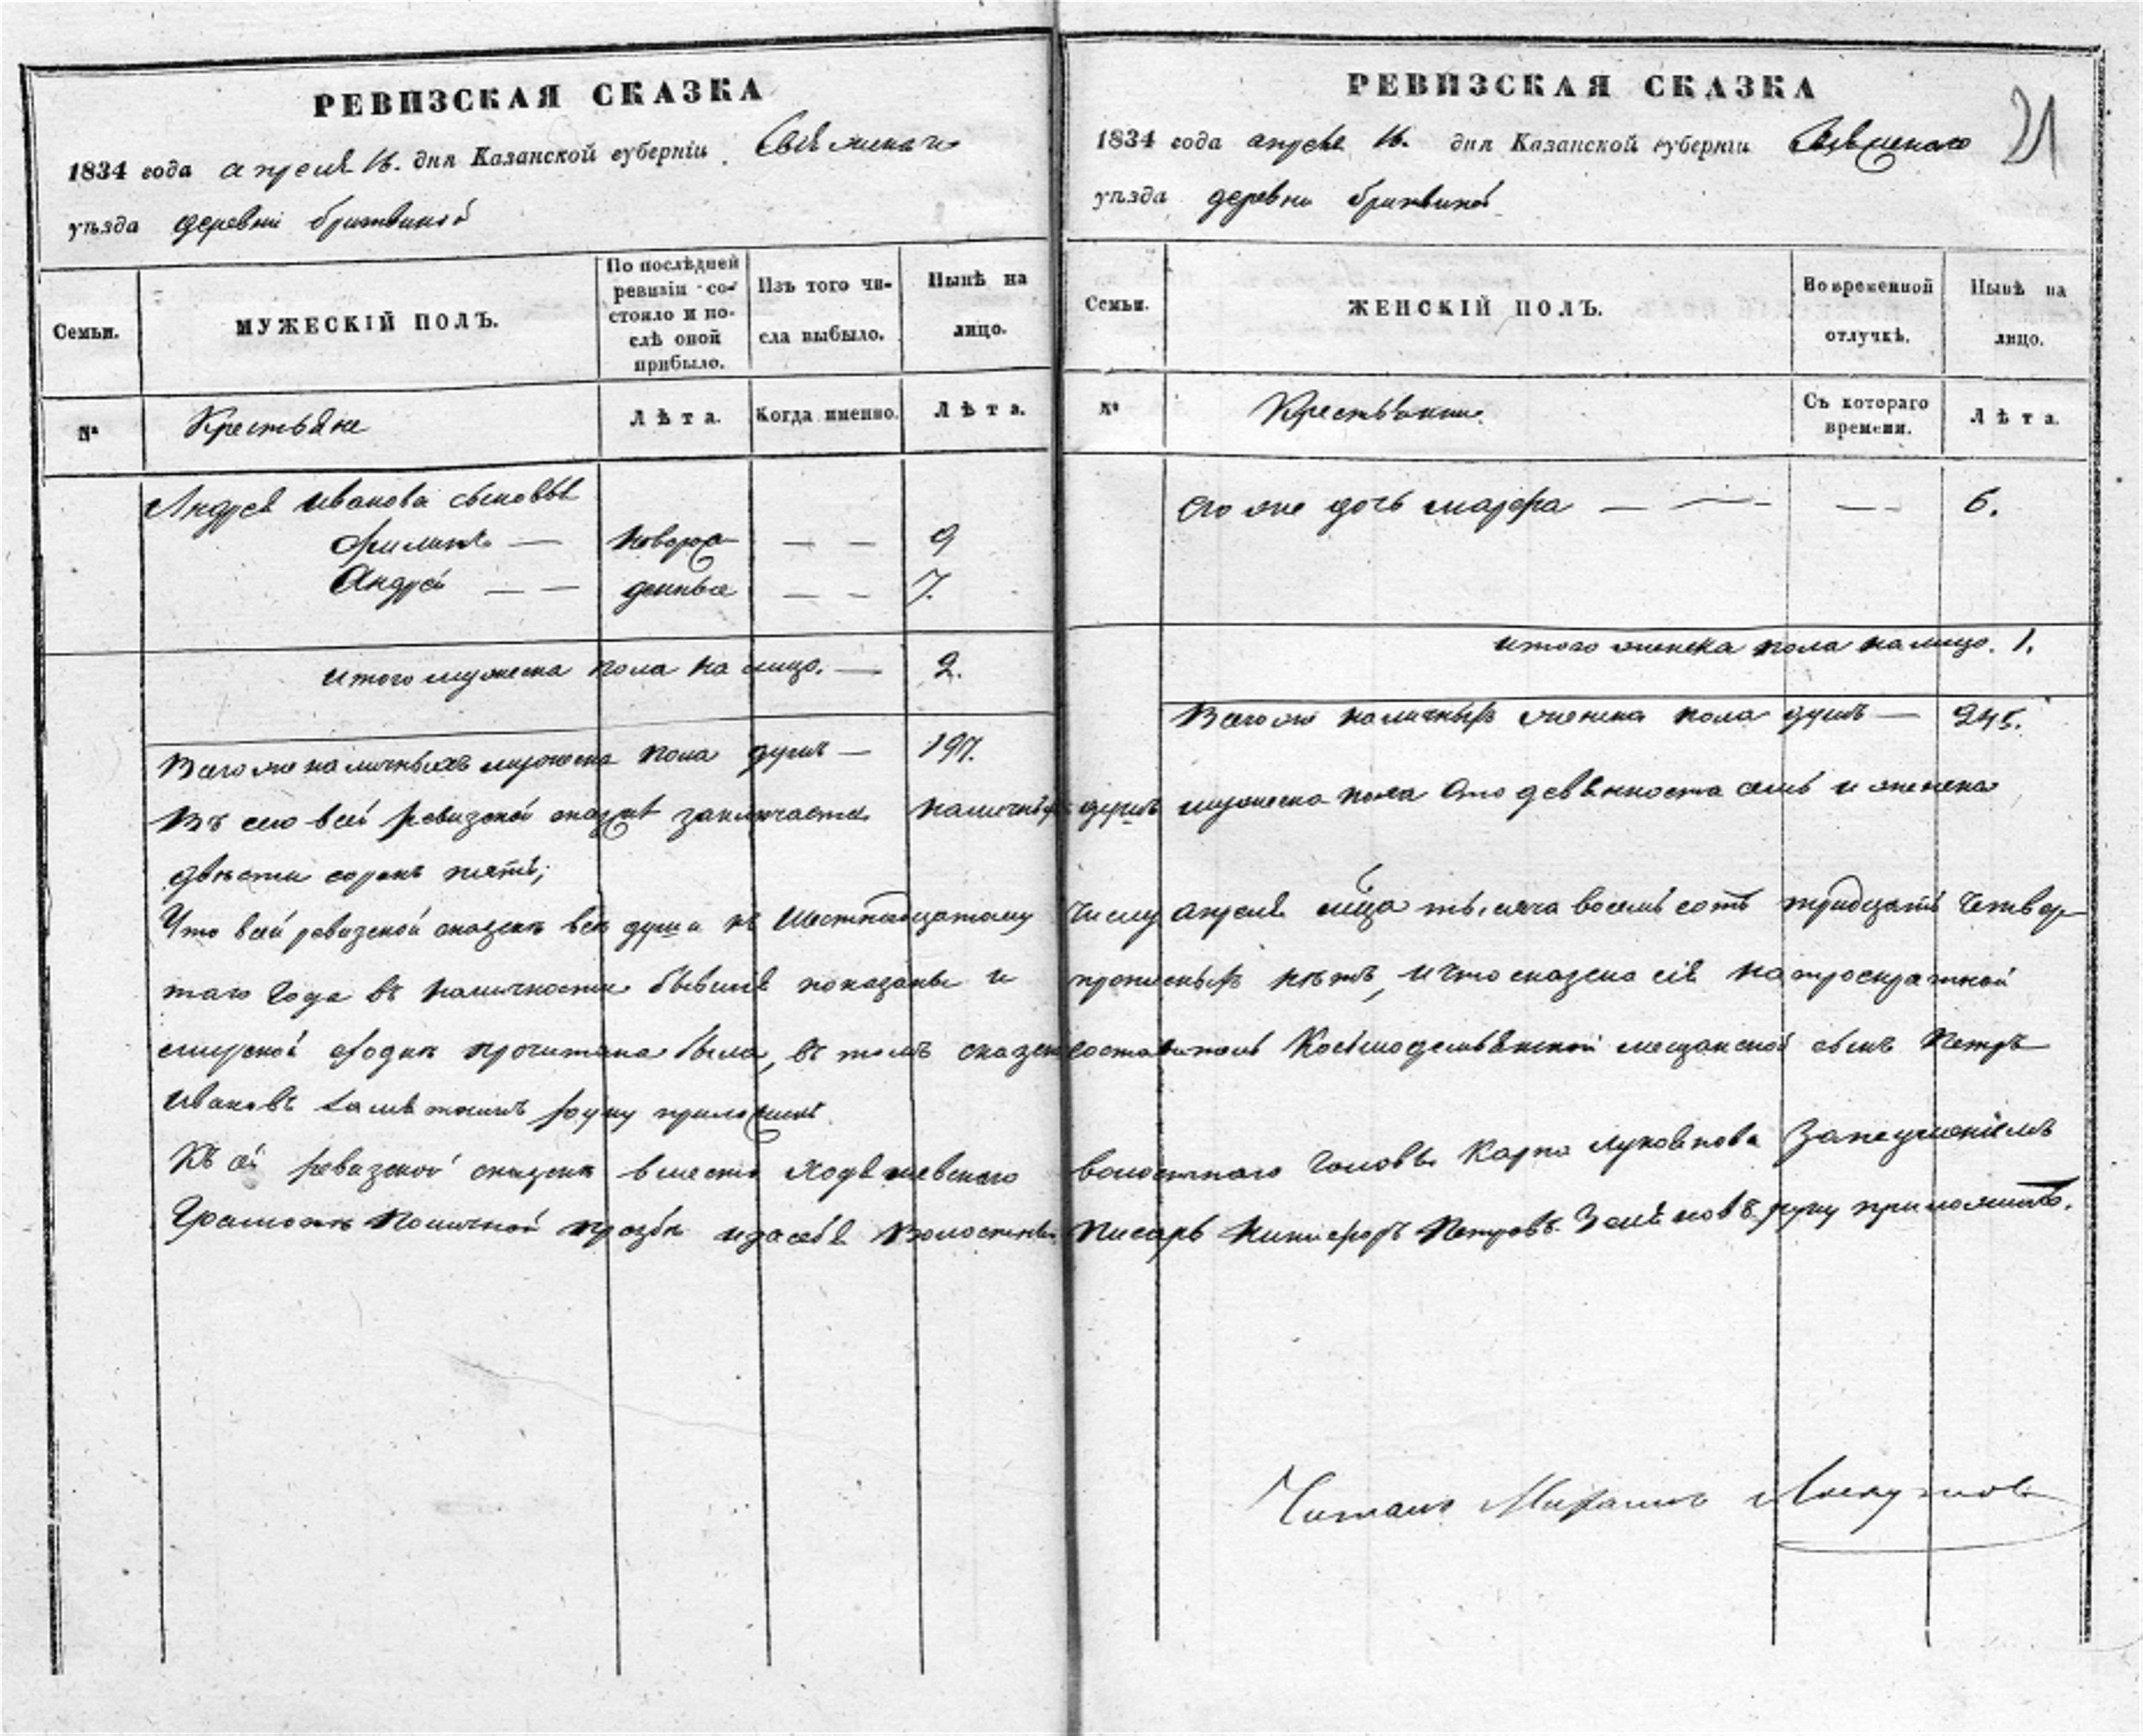 РЕВИЗСКАЯ СКАЗКА
1834 года апреля 16. дня Казанской губерніи
уѣзда деревни
Семьи.
МУЖЕСКІЙ ПОЛЪ.
По послѣдней ревизіи состояло и послѣ оной прибыло.
Изъ того числа выбыло.
Нынѣ на лицо.
№
Крестьяне
Лѣта.
Когда именно.
Лѣта.
Андрея Иванова сыновья
Филипъ — новоро — — 9
Андрей — — денные — — 7.
итого мужеска пола на лицо. — 2.
Всего же наличныхъ мужеска пола душъ — 197.
РЕВИЗСКАЯ СКАЗКА
21
1834 года апреля 16. дня Казанской губерніи
уѣзда деревни
Семьи.
ЖЕНСКІЙ ПОЛЪ.
Во временной отлучкѣ.
Нынѣ на лицо.
№
Съ котораго времени.
Лѣта.
его же дочь — — — 6.
итого женска пола на лицо. 1.
Всего же наличныхъ женска пола душъ — 245.
Въ сей ревизской сказке заключается наличныхъ душъ мужеска пола сто девяносто семь и женска
двѣсти сорокъ пять;
Что в сей ревизской сказкѣ все души къ шестнадцатому числу апреля мца тысяча восемь сотъ тридцать четвер
таго года въ наличности бывшія показаны и прописныхъ нѣтъ, и что сказка сія на
мирской сходкѣ прочитана была, въ томъ сказкосоставитель Козьмодемьянской мещанской сынъ Петръ
Ивановъ руку приложилъ
Къ сей ревизской сказкѣ вместо волостнаго головы Карпа
грамоте по личной прозбѣ и за себя волостной писарь Никифоръ Петровъ руку приложилъ.
Читалъ